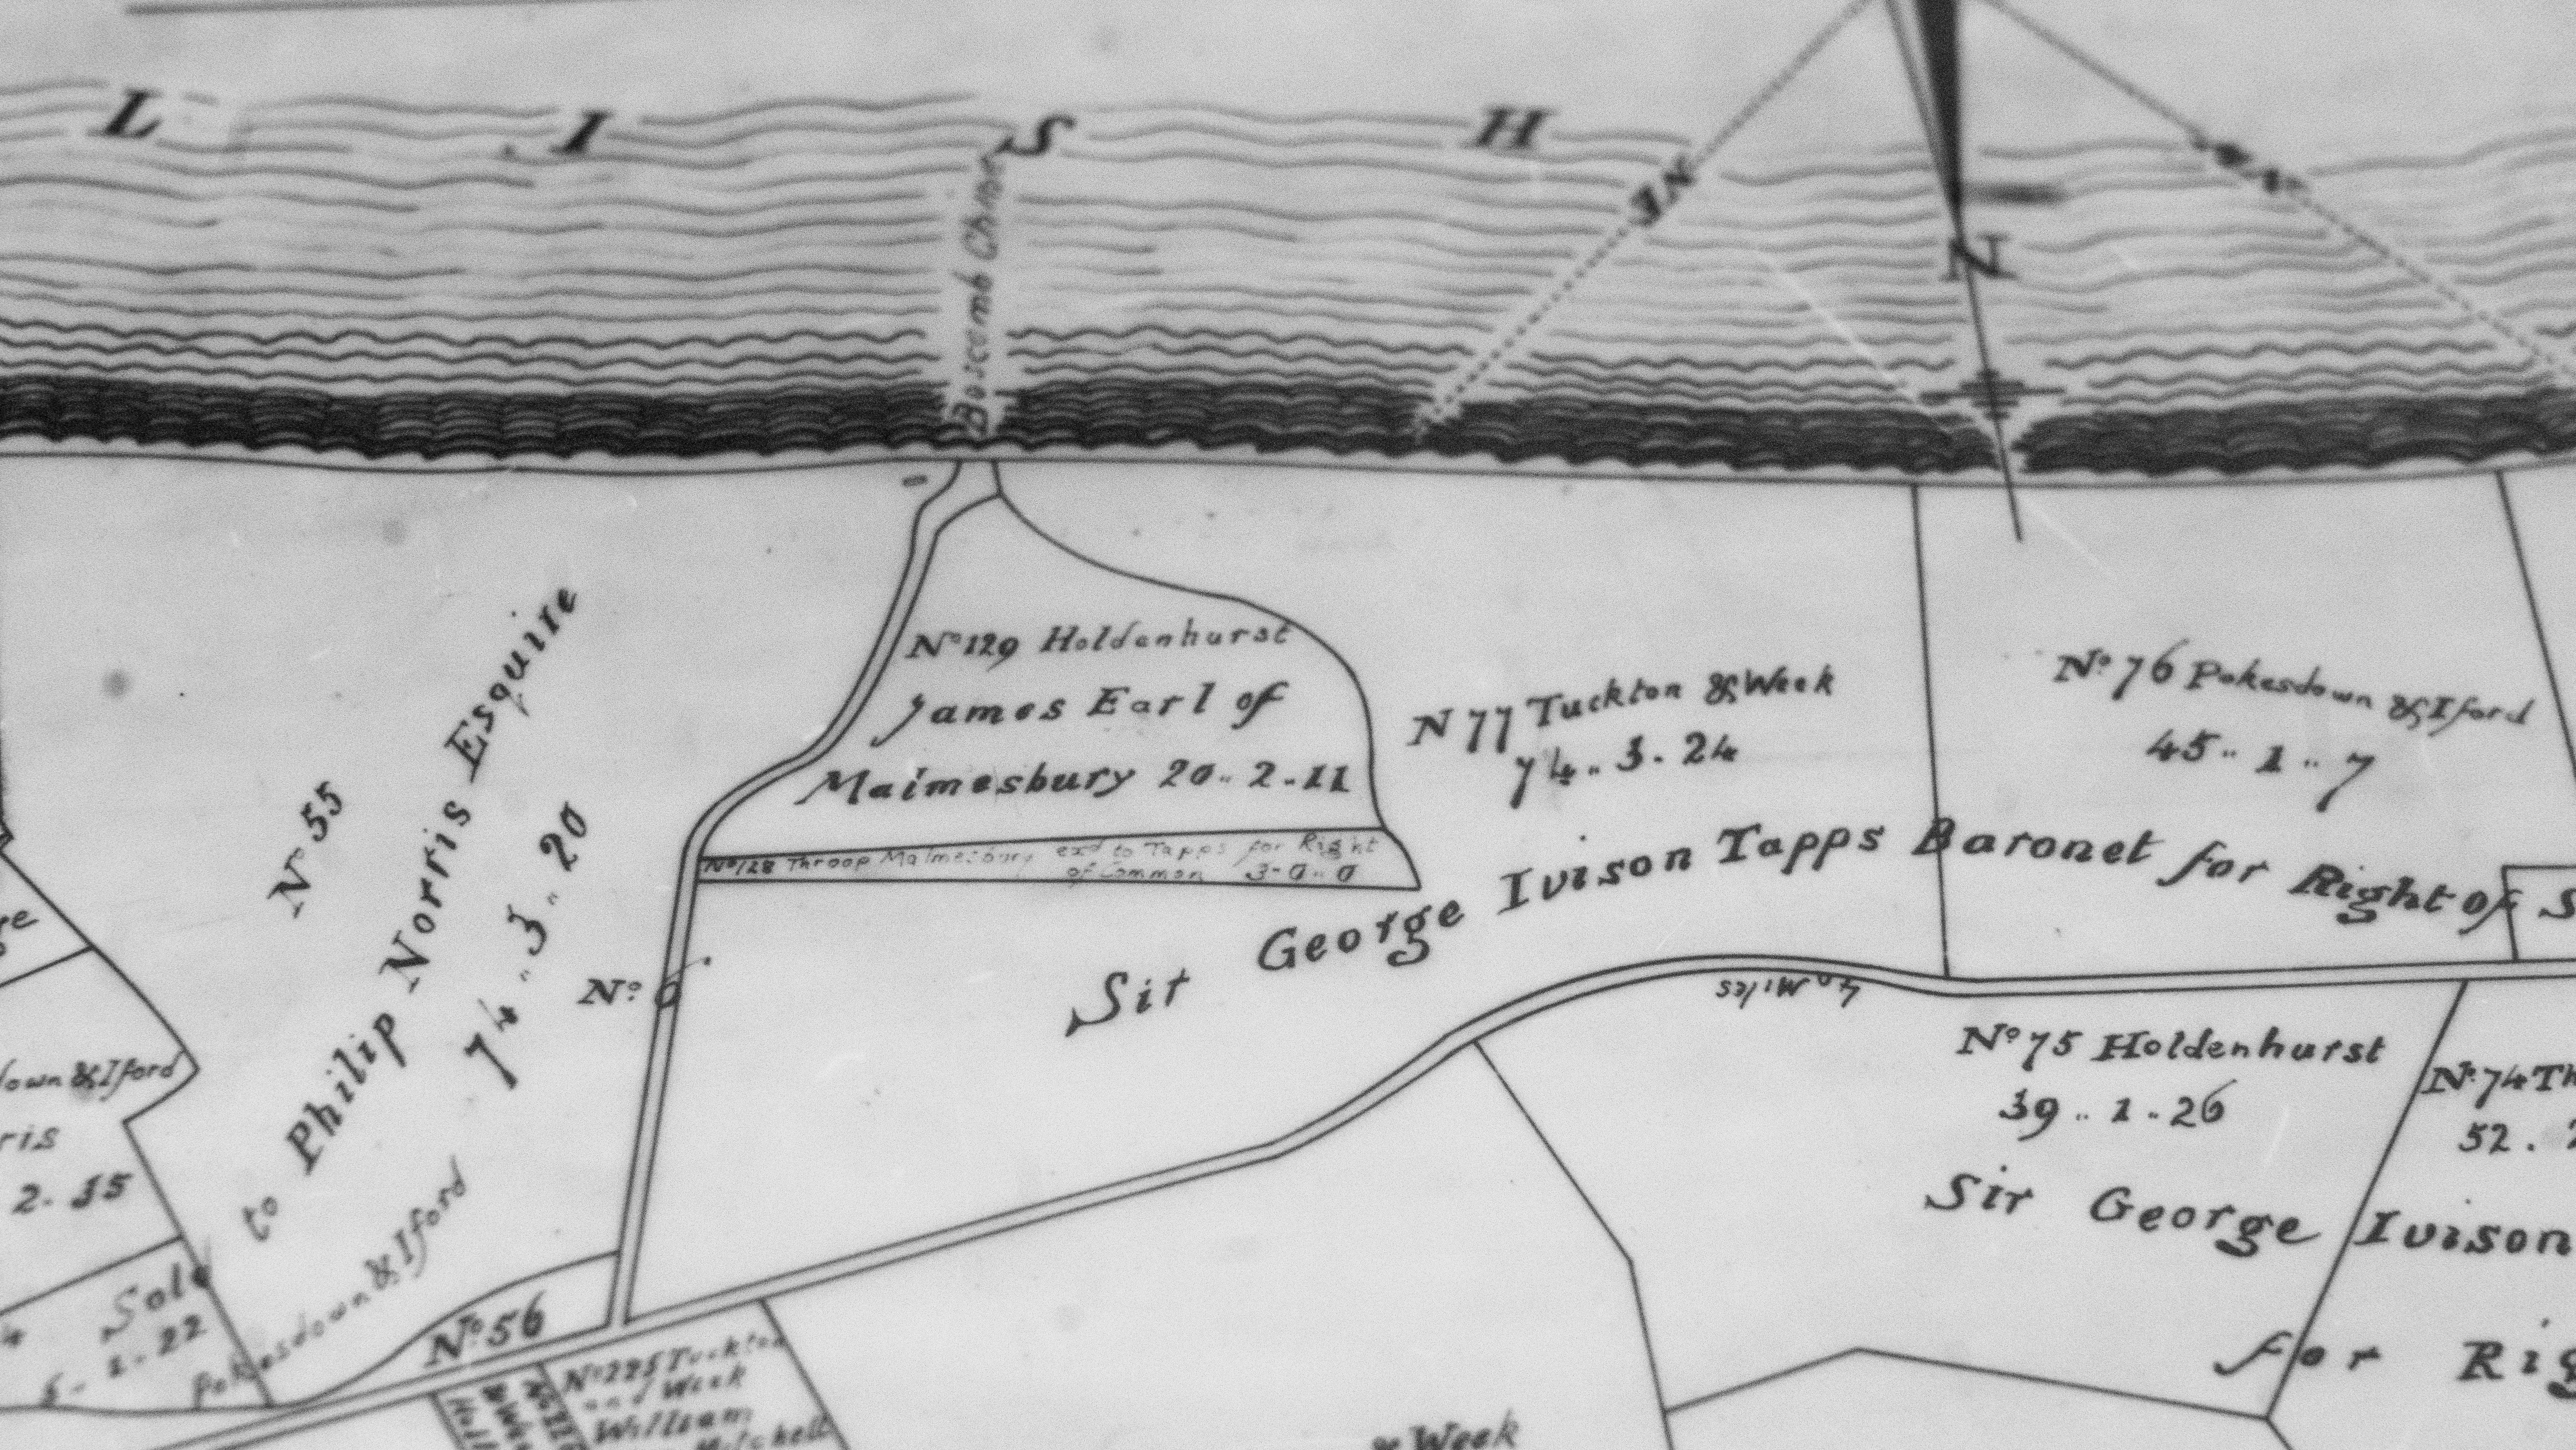 L I S H
NE
N
Boscomb Chine
No 129 Holdenhurst
James Earl of
Malmesbury 20..2.11
No 128 Throop Malmesbury exd to Tapps for Right
of Common 3-0..0
N 77 Tuckton & Week
74..3.24
No 76 Pokesdown & Iford
45..1..7
Sir George Ivison Tapps Baronet for Right of S
No 55
to Philip Norris Esquire
74..3..20
Pokesdown & Iford
No 6
No 56
Miles
No 75 Holdenhurst
39..1..26
No 74 Th
52.
Sir George Ivison
for Rig
own & Iford
ris
2.15
Sold
1.22
No 225 Tuckton
and Week
William
Mitchell
& Week